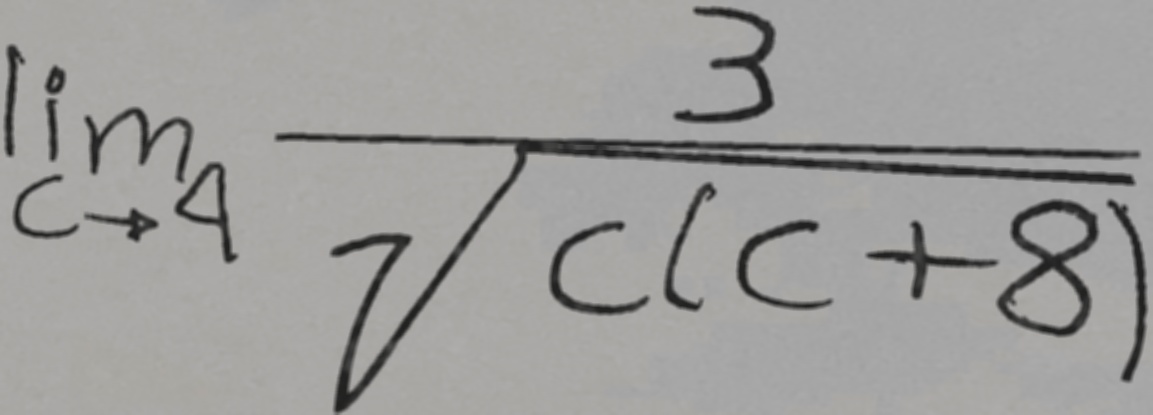 \lim_{c \to 4} \frac{3}{\sqrt{c(c+8)}}